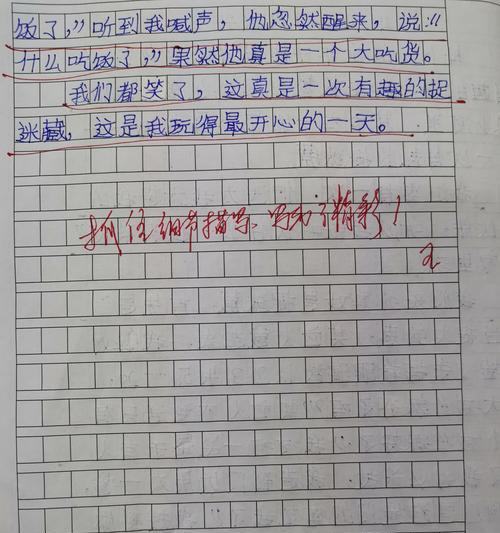 饭了，”听到我喊声，他忽然醒来，说：“
什么吃饭了，”果然他真是一个大吃货。
我们都笑了，这真是一次有趣的捉
迷藏，这是我玩得最开心的一天。
抓住细节描写，写动了精彩！